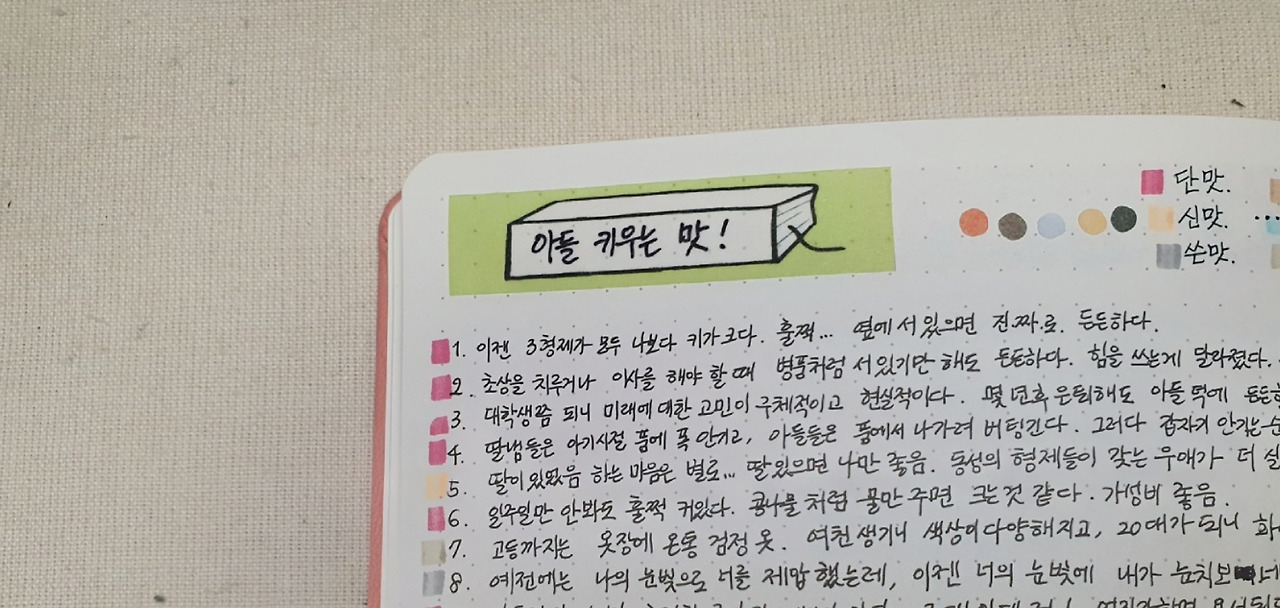 아들 키우는 맛!
단맛.
신맛.
쓴맛.
1. 이젠 3형제가 모두 나보다 키가 크다. 훌쩍... 옆에 서 있으면 진.짜.로. 든든하다.
2. 초상을 치루거나 이사를 해야 할 때 병풍처럼 서 있기만 해도 든든하다. 힘을 쓰는게 달라졌다.
3. 대학생쯤 되니 미래에 대한 고민이 구체적이고 현실적이다. 몇 년후 은퇴해도 아들 덕에 든든
4. 딸냄들은 아기시절 품에 폭 안기고, 아들들은 품에서 나가려 버팅긴다. 그러다 갑자기 안기는
5. 딸이 있었음 하는 마음은 별로... 딸 있으면 나만 좋음. 동성의 형제들이 갖는 우애가 더
6. 일주일만 안봐도 훌쩍 커있다. 콩나물처럼 물만 주면 크는 것 같다. 가성비 좋음.
7. 고등까지는 옷장에 온통 검정 옷. 여친 생기니 색상이 다양해지고, 20대가 되니
8. 예전에는 나의 눈빛으로 너를 제압했는데, 이젠 너의 눈빛에 내가 눈치보